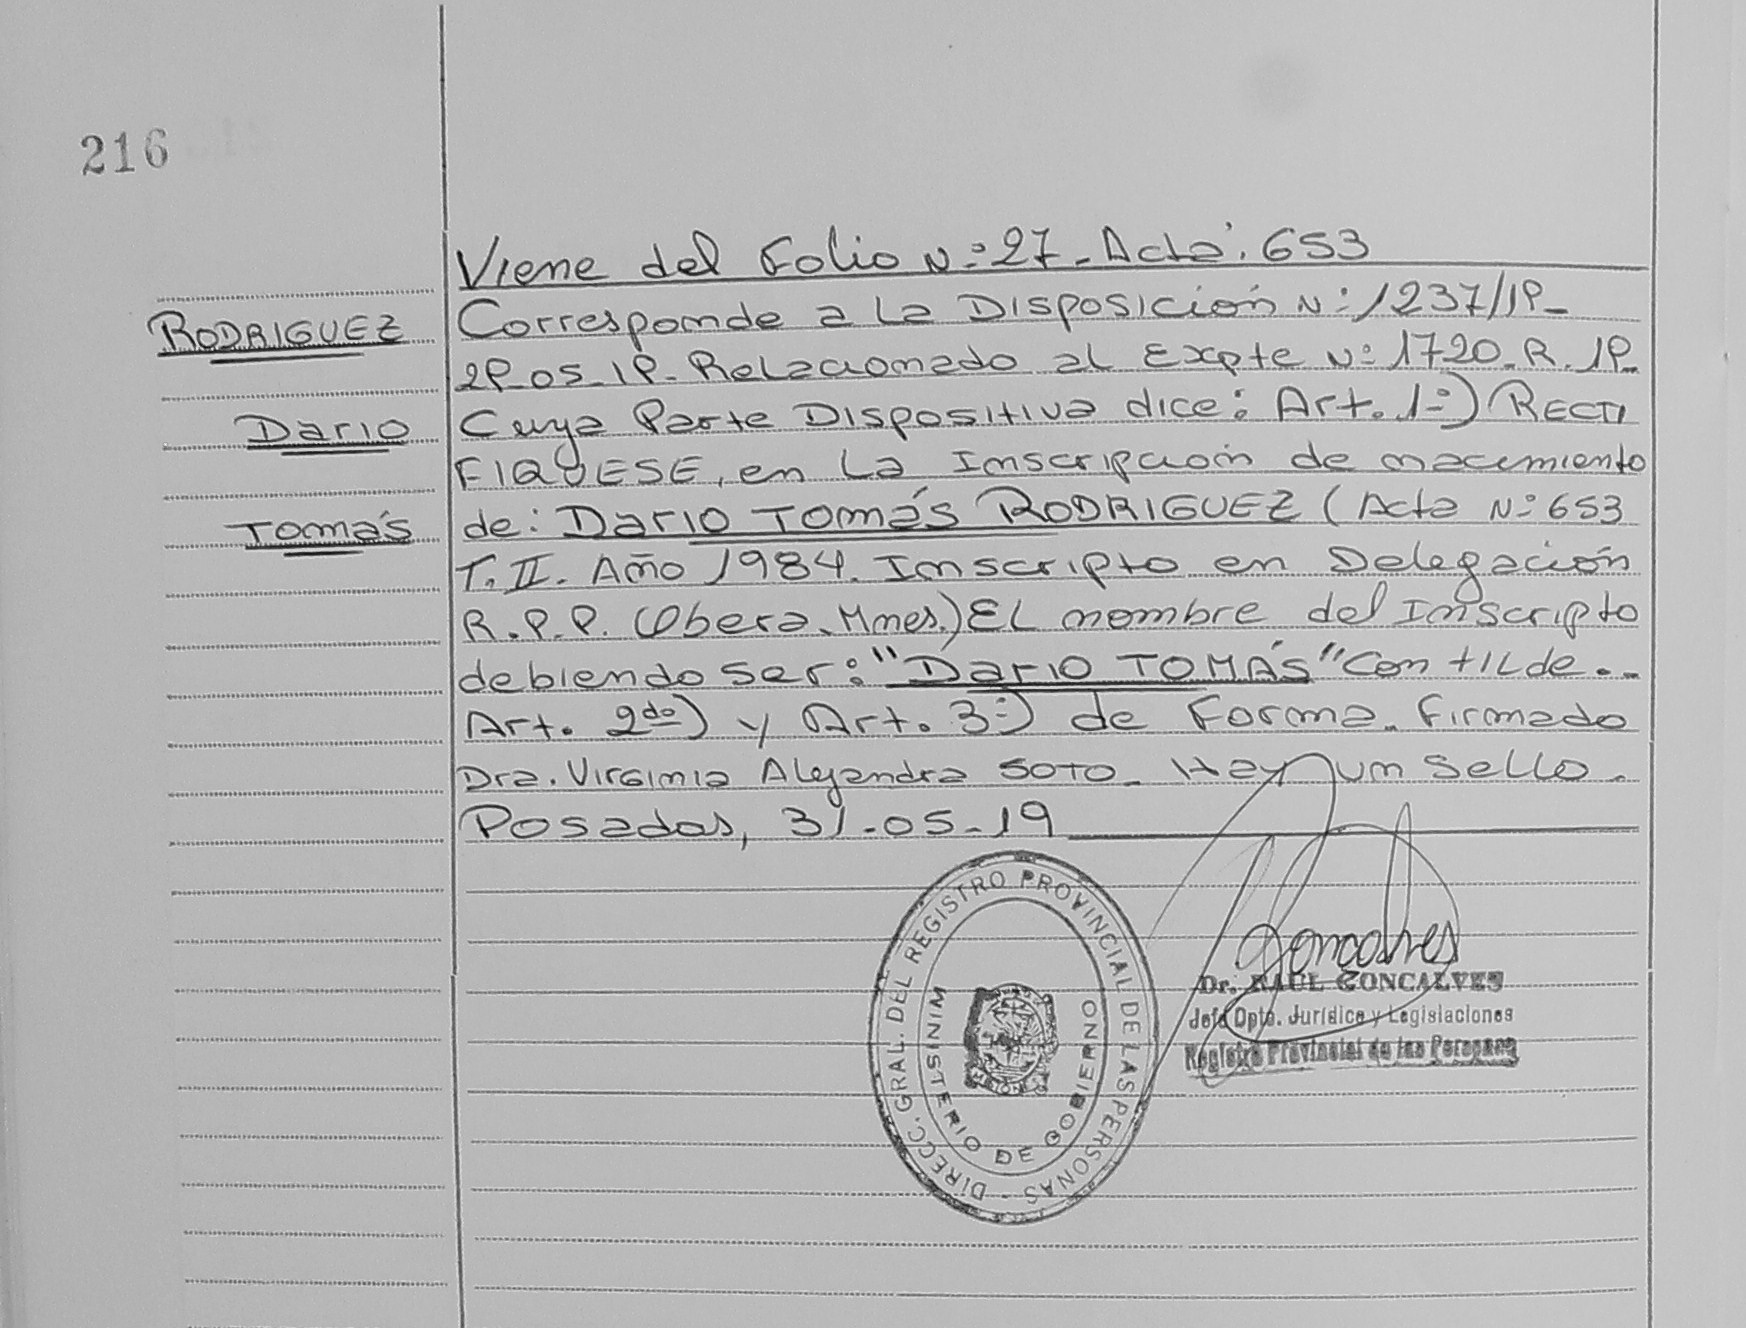 216
Viene del Folio N:º 27-Acta: 653
RODRIGUEZ
Dario
Tomás
Corresponde a la Disposición Nº: 1237/19-
29-05-19- Relacionado al Expte Nº 1720-R-19-
Cuya Parte Dispositiva dice: Art. 1º) RECTI
FIQUESE, en la Inscripción de nacimiento
de: Dario Tomás RODRIGUEZ (Acta Nº 653
T. II. Año 1984. Inscripto en Delegación
R.P.P. (Obera-Mnes.) El nombre del Inscripto
debiendo ser: "Dario TOMÁS" Con tilde.-
Art. 2do) y Art. 3º) de Forma. Firmado
Dra. Virginia Alejandra SOTO- Hay un Sello.
Posadas, 31-05-19
DIRECC. GRAL. DEL REGISTRO PROVINCIAL DE LAS PERSONAS -
MINISTERIO DE GOBIERNO
Goncalves
Dr. RAUL GONCALVES
Jefe Dpto. Jurídico y Legislaciones
Registro Provincial de las Personas